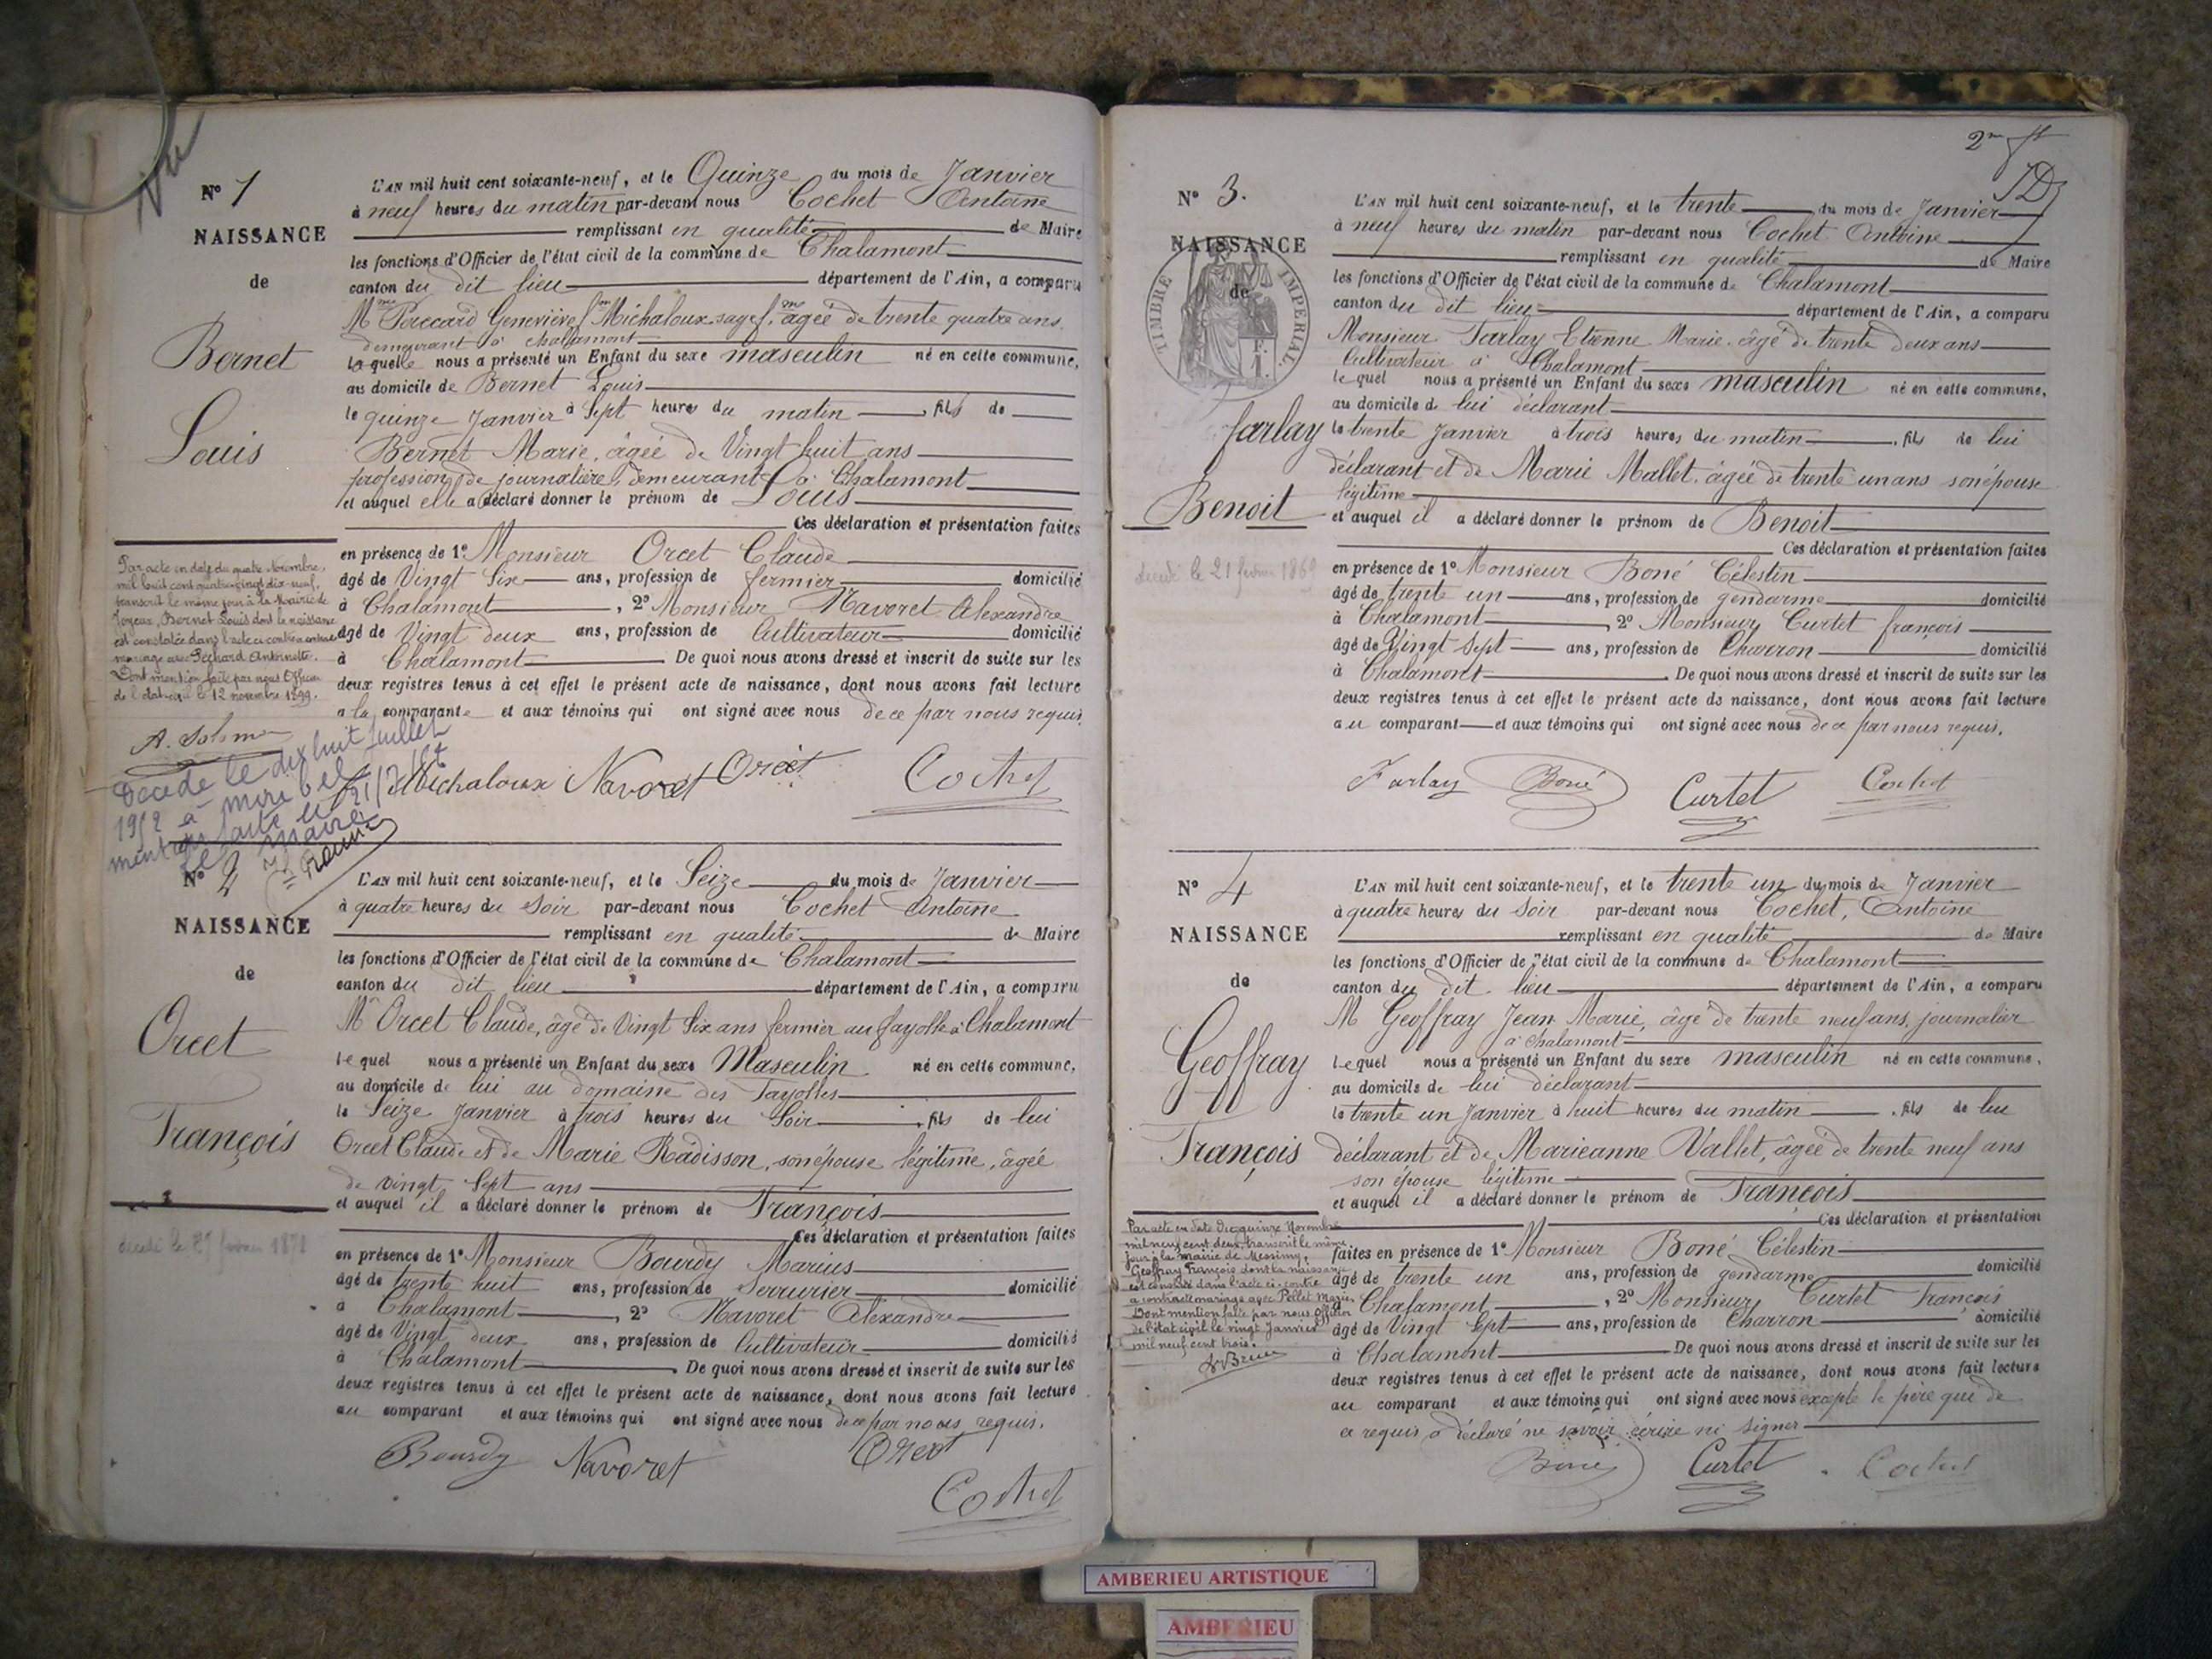 Vu
N° 1
NAISSANCE
de
Bernet
Louis
L'AN mil huit cent soixante-neuf, et le Quinze du mois de Janvier
à neuf heures du matin par-devant nous Cochet Antoine
remplissant en qualité de Maire
les fonctions d'Officier de l'état civil de la commune de Chalamont
canton du dit lieu département de l'Ain, a comparu
Mme Perecard Geneviève fme Michaloux sage fme âgée de trente quatre ans
demeurant à Chalamont
laquelle nous a présenté un Enfant du sexe masculin né en cette commune,
au domicile de Bernet Louis
le quinze Janvier à Sept heures du matin, fils de
Bernet Marie, âgée de Vingt huit ans
profession de journalière, demeurant à Chalamont
et auquel elle a déclaré donner le prénom de Louis
Ces déclaration et présentation faites
en présence de 1° Monsieur Orcet Claude
âgé de Vingt Six ans, profession de fermier domicilié
à Chalamont, 2° Monsieur Navoret Alexandre
âgé de Vingt deux ans, profession de Cultivateur domicilié
à Chalamont De quoi nous avons dressé et inscrit de suite sur les
deux registres tenus à cet effet le présent acte de naissance, dont nous avons fait lecture
a la comparante et aux témoins qui ont signé avec nous de ce par nous requis.
Par acte en date du quatre Novembre,
mil huit cent quatre-vingt dix-neuf,
transcrit le même jour à la Mairie de
Joyeux, Bernet Louis dont la naissance
est constatée dans l'acte ci-contre a contracté
mariage avec Péchard Antoinette.
Dont mention faite par nous Officier
de l'état-civil le 12 novembre 1899.
Décédé le dix huit juillet
1952 à mirebel
mention faite le 21/7/
le maire
Michaloux Navoret Orcet Cochet
N° 2
NAISSANCE
de
Orcet
François
L'AN mil huit cent soixante-neuf, et le Seize du mois de Janvier
à quatre heures du Soir par-devant nous Cochet Antoine
remplissant en qualité de Maire
les fonctions d'Officier de l'état civil de la commune de Chalamont
canton du dit lieu département de l'Ain, a comparu
Mr Orcet Claude, âgé de Vingt Six ans fermier au fayolle à Chalamont
lequel nous a présenté un Enfant du sexe Masculin né en cette commune,
au domicile de lui au domaine des Fayolles
le Seize Janvier à trois heures du Soir, fils de lui
Orcet Claude et de Marie Radisson, son épouse légitime, âgée
de vingt Sept ans
et auquel il a déclaré donner le prénom de François
Ces déclaration et présentation faites
en présence de 1° Monsieur Bourdy Marius
âgé de trente huit ans, profession de Serrurier domicilié
à Chalamont, 2° Navoret Alexandre
âgé de Vingt deux ans, profession de Cultivateur domicilié
à Chalamont. De quoi nous avons dressé et inscrit de suite sur les
deux registres tenus à cet effet le présent acte de naissance, dont nous avons fait lecture
au comparant et aux témoins qui ont signé avec nous de ce par nous requis.
Bourdy Navoret Orcet
Cochet
2me ft
N° 3.
NAISSANCE
de
TIMBRE IMPERIAL
Farlay
Benoit
L'AN mil huit cent soixante-neuf, et le trente du mois de Janvier
à neuf heures du matin par-devant nous Cochet Antoine
remplissant en qualité de Maire
les fonctions d'Officier de l'état civil de la commune de Chalamont
canton du dit lieu département de l'Ain, a comparu
Monsieur Farlay Etienne Marie, âgé de trente deux ans
Cultivateur à Chalamont
lequel nous a présenté un Enfant du sexe masculin né en cette commune,
au domicile de lui déclarant
le trente Janvier à trois heures du matin, fils de lui
déclarant et de Marie Mallet, âgée de trente un ans son épouse
légitime
et auquel il a déclaré donner le prénom de Benoit
Ces déclaration et présentation faites
décédé le 21 février 1869
en présence de 1° Monsieur Boné Célestin
âgé de trente un ans, profession de gendarme domicilié
à Chalamont, 2° Monsieur Curtet françois
âgé de Vingt Sept ans, profession de Charron domicilié
à Chalamont. De quoi nous avons dressé et inscrit de suite sur les
deux registres tenus à cet effet le présent acte de naissance, dont nous avons fait lecture
au comparant et aux témoins qui ont signé avec nous de ce par nous requis.
Farlay Boné Curtet Cochet
N° 4
NAISSANCE
de
Geoffray
François
L'AN mil huit cent soixante-neuf, et le trente un du mois de Janvier
à quatre heures du Soir par-devant nous Cochet, Antoine
remplissant en qualité de Maire
les fonctions d'Officier de l'état civil de la commune de Chalamont
canton du dit lieu département de l'Ain, a comparu
M Geoffray Jean Marie, âgé de trente neuf ans, journalier
à Chalamont
lequel nous a présenté un Enfant du sexe masculin né en cette commune,
au domicile de lui déclarant
le trente un Janvier à huit heures du matin, fils de lui
déclarant et de Marieanne Vallet, âgée de trente neuf ans
son épouse légitime
et auquel il a déclaré donner le prénom de François
Ces déclaration et présentation
faites en présence de 1° Monsieur Boné Célestin
âgé de trente un ans, profession de gendarme domicilié
à Chalamont, 2° Monsieur Curtet François
âgé de Vingt Sept ans, profession de Charron domicilié
à Chalamont De quoi nous avons dressé et inscrit de suite sur les
deux registres tenus à cet effet le présent acte de naissance, dont nous avons fait lecture
au comparant et aux témoins qui ont signé avec nous excepté le père qui de
ce requis a déclaré ne savoir écrire ni signer
Par acte en date du quinze Novembre
mil neuf cent deux, transcrit le même
jour à la mairie de Messimy,
Geoffray François dont la naissance
est constatée dans l'acte ci-contre
a contracté mariage avec Pellet Marie.
Dont mention faite par nous officier
de l'état civil le vingt Janvier
mil neuf cent trois.
Boné Curtet Cochet
AMBERIEU ARTISTIQUE
AMBERIEU